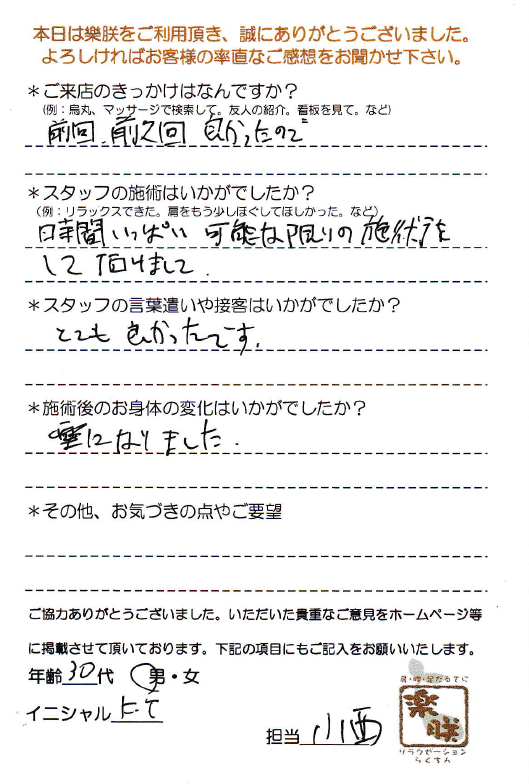 本日は樂朕をご利用頂き、誠にありがとうございました。
よろしければお客様の率直なご感想をお聞かせ下さい。
＊ご来店のきっかけはなんですか？
(例：烏丸、マッサージで検索して。友人の紹介。看板を見て。など)
前回、前々回 良かったので
＊スタッフの施術はいかがでしたか？
(例：リラックスできた。肩をもう少しほぐしてほしかった。など)
時間いっぱい 可能な限りの施術を
して頂けまして.
＊スタッフの言葉遣いや接客はいかがでしたか？
とても良かったです.
＊施術後のお身体の変化はいかがでしたか？
になりました.
＊その他、お気づきの点やご要望
ご協力ありがとうございました。いただいた貴重なご意見をホームページ等
に掲載させて頂いております。下記の項目にもご記入をお願いいたします。
年齢 30 代 男・女
イニシャル K.T
担当 小西
肩・腰・足だるてに
樂朕
リラクゼーション
らくちん